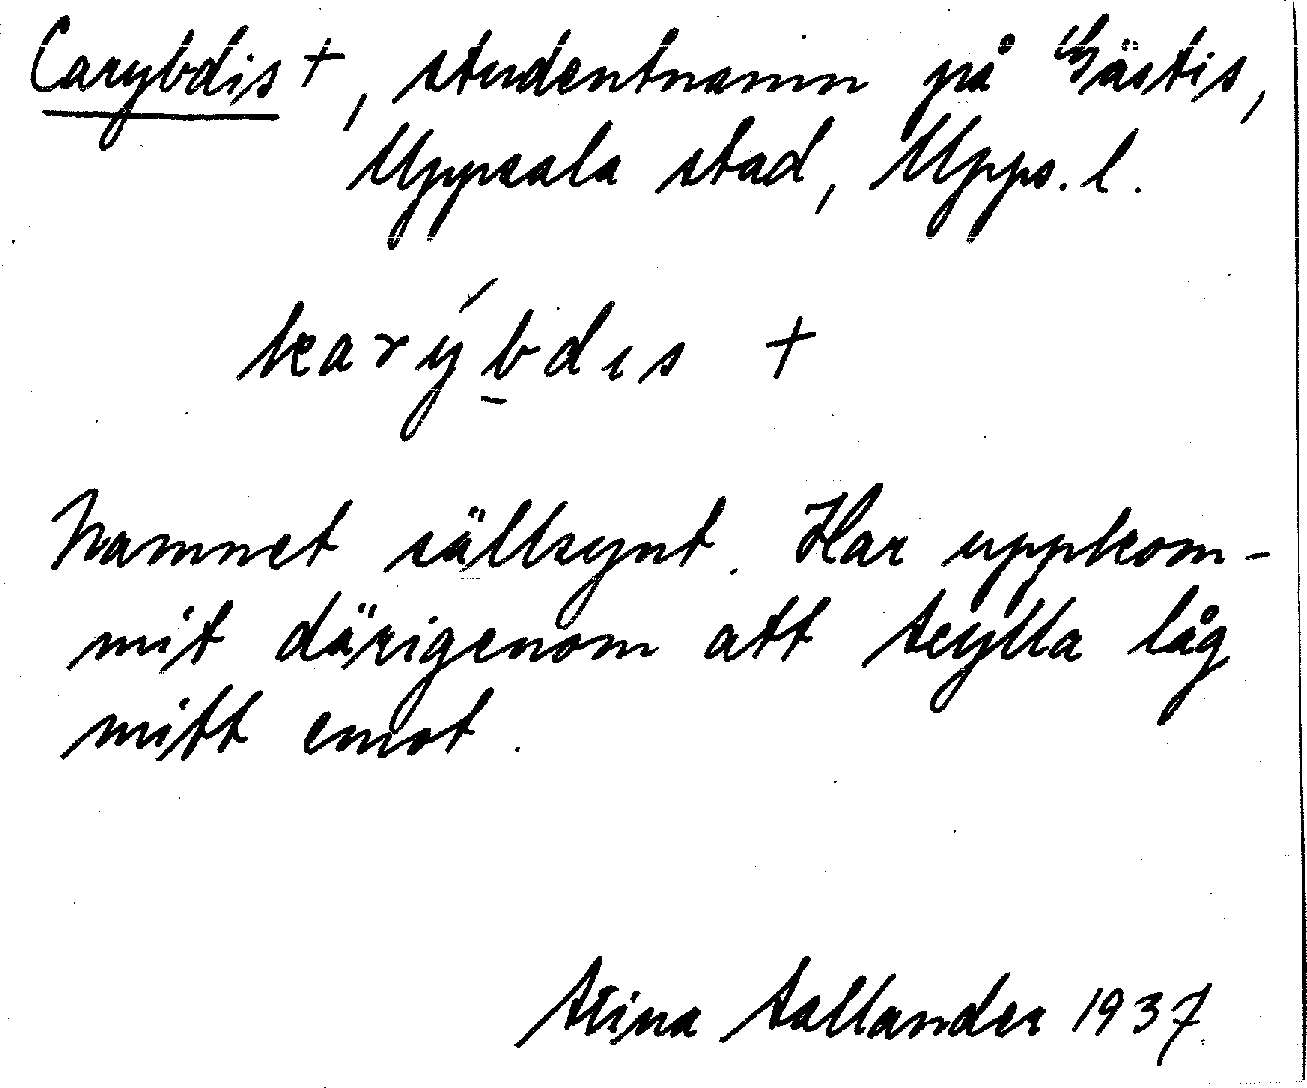 Carybdis +, studentnamn på Gästis,
Uppsala stad, Upps. l.
karýbdıs +
Namnet sällsynt. Har uppkom-
mit därigenom att Scylla låg
mitt emot.
Stina Sallander 1937